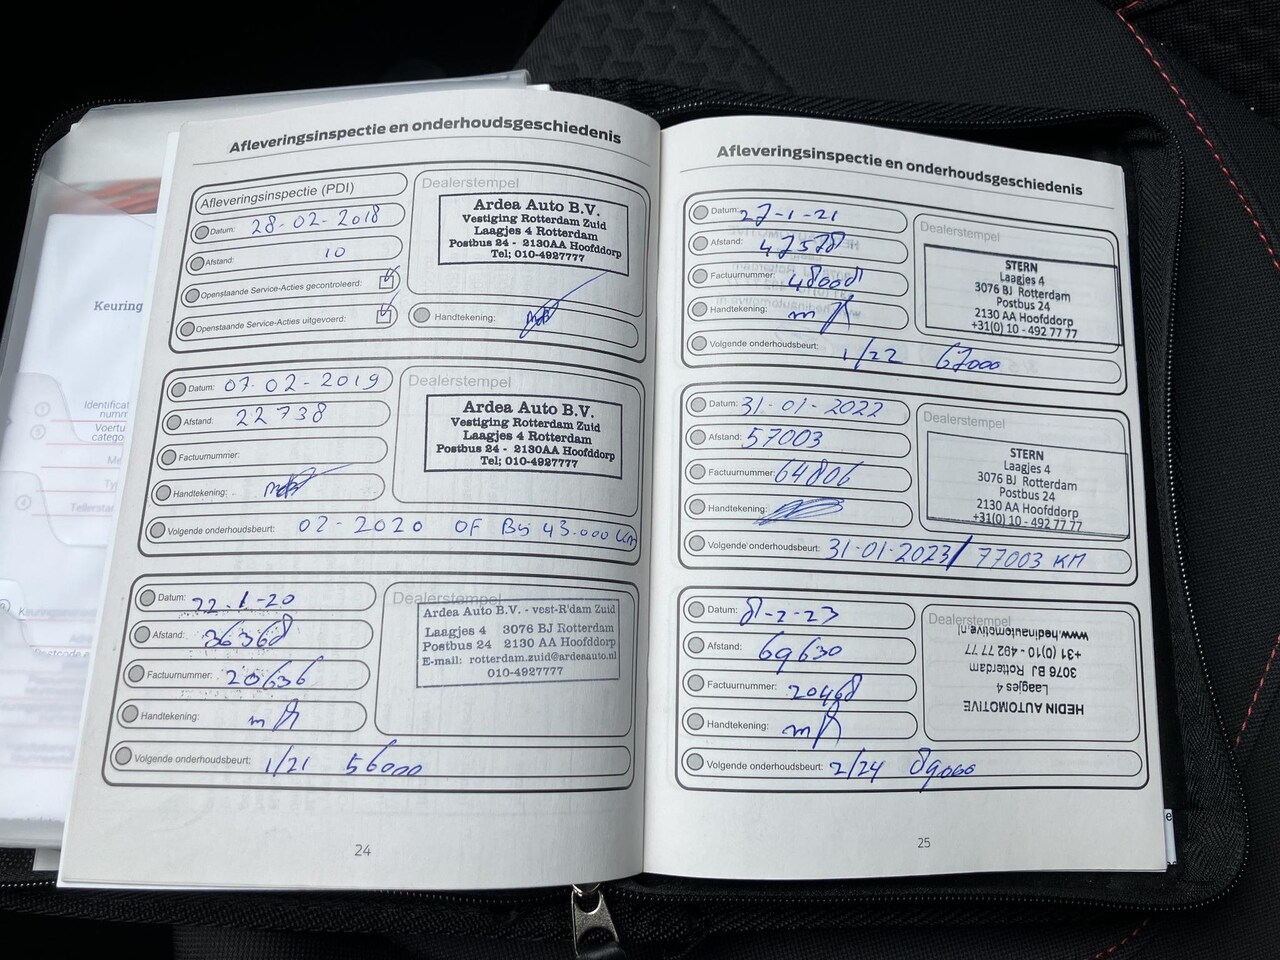 Keuring
Afleveringsinspectie en onderhoudsgeschiedenis
Afleveringsinspectie (PDI)
Datum: 28-02-2018
Afstand: 10
Openstaande Service-Acties gecontroleerd:
Openstaande Service-Acties uitgevoerd:
Dealerstempel
Ardea Auto B.V.
Vestiging Rotterdam Zuid
Laagjes 4 Rotterdam
Postbus 24 - 2130AA Hoofddorp
Tel; 010-4927777
Handtekening:
Datum: 07-02-2019
Afstand: 22738
Factuurnummer:
Handtekening:
Dealerstempel
Ardea Auto B.V.
Vestiging Rotterdam Zuid
Laagjes 4 Rotterdam
Postbus 24 - 2130AA Hoofddorp
Tel; 010-4927777
Volgende onderhoudsbeurt: 02-2020 OF Bij 43.000 Km
Datum: 22-1-20
Afstand: 36368
Factuurnummer: 20636
Handtekening:
Dealerstempel
Ardea Auto B.V. - vest-R'dam Zuid
Laagjes 4 3076 BJ Rotterdam
Postbus 24 2130 AA Hoofddorp
E-mail: rotterdam.zuid@ardeaauto.nl
010-4927777
Volgende onderhoudsbeurt: 1/21 56000
24
Afleveringsinspectie en onderhoudsgeschiedenis
Datum: 27-1-21
Afstand: 47578
Factuurnummer: 48008
Handtekening:
Dealerstempel
STERN
Laagjes 4
3076 BJ Rotterdam
Postbus 24
2130 AA Hoofddorp
+31(0) 10 - 492 77 77
Volgende onderhoudsbeurt: 1/22 67000
Datum: 31-01-2022
Afstand: 57003
Factuurnummer: 64806
Handtekening:
Dealerstempel
STERN
Laagjes 4
3076 BJ Rotterdam
Postbus 24
2130 AA Hoofddorp
+31(0) 10 - 492 77 77
Volgende onderhoudsbeurt: 31-01-2023/ 77003 KM
Datum: 8-2-23
Afstand: 69630
Factuurnummer: 20468
Handtekening:
Dealerstempel
HEDIN AUTOMOTIVE
Laagjes 4
3076 BJ Rotterdam
+31 (0)10 - 492 77 77
www.hedinautomotive.nl
Volgende onderhoudsbeurt: 2/24 89000
25